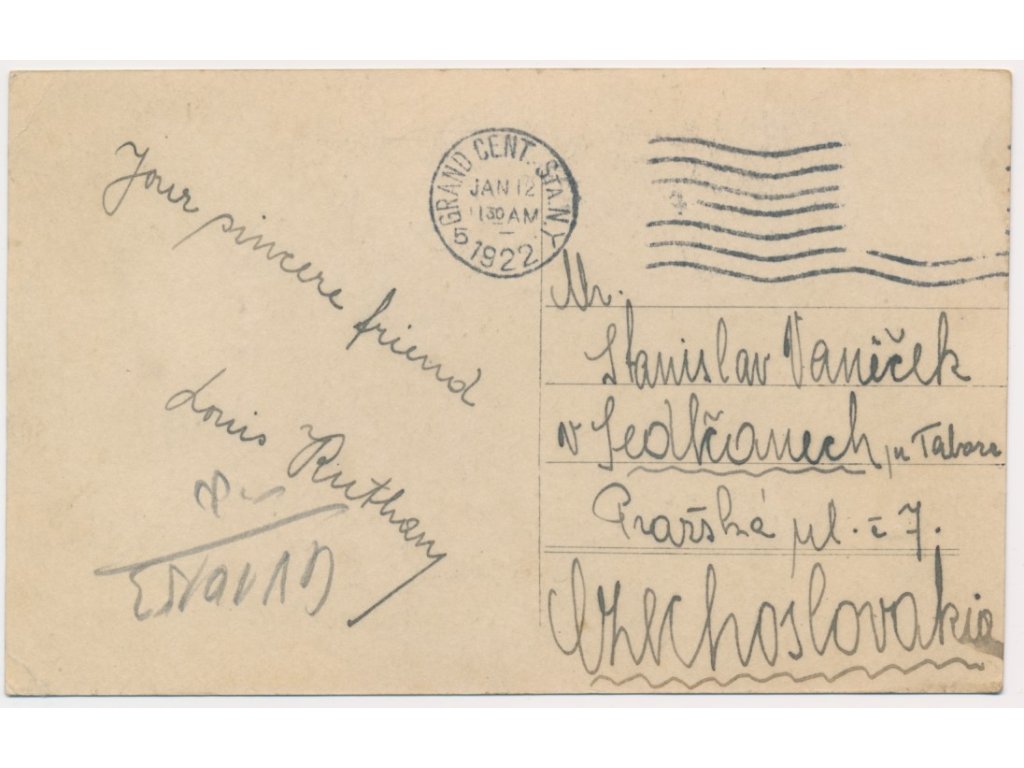 Your sincere friend
Louis Ruthany
GRAND CENT. STA. N.Y.
JAN 12
1130 AM
5 1922
Mr.
Stanislav Vaníček
v Sedlčanech, u Tábora
Pražská ul. č 7.
Czechoslovakia